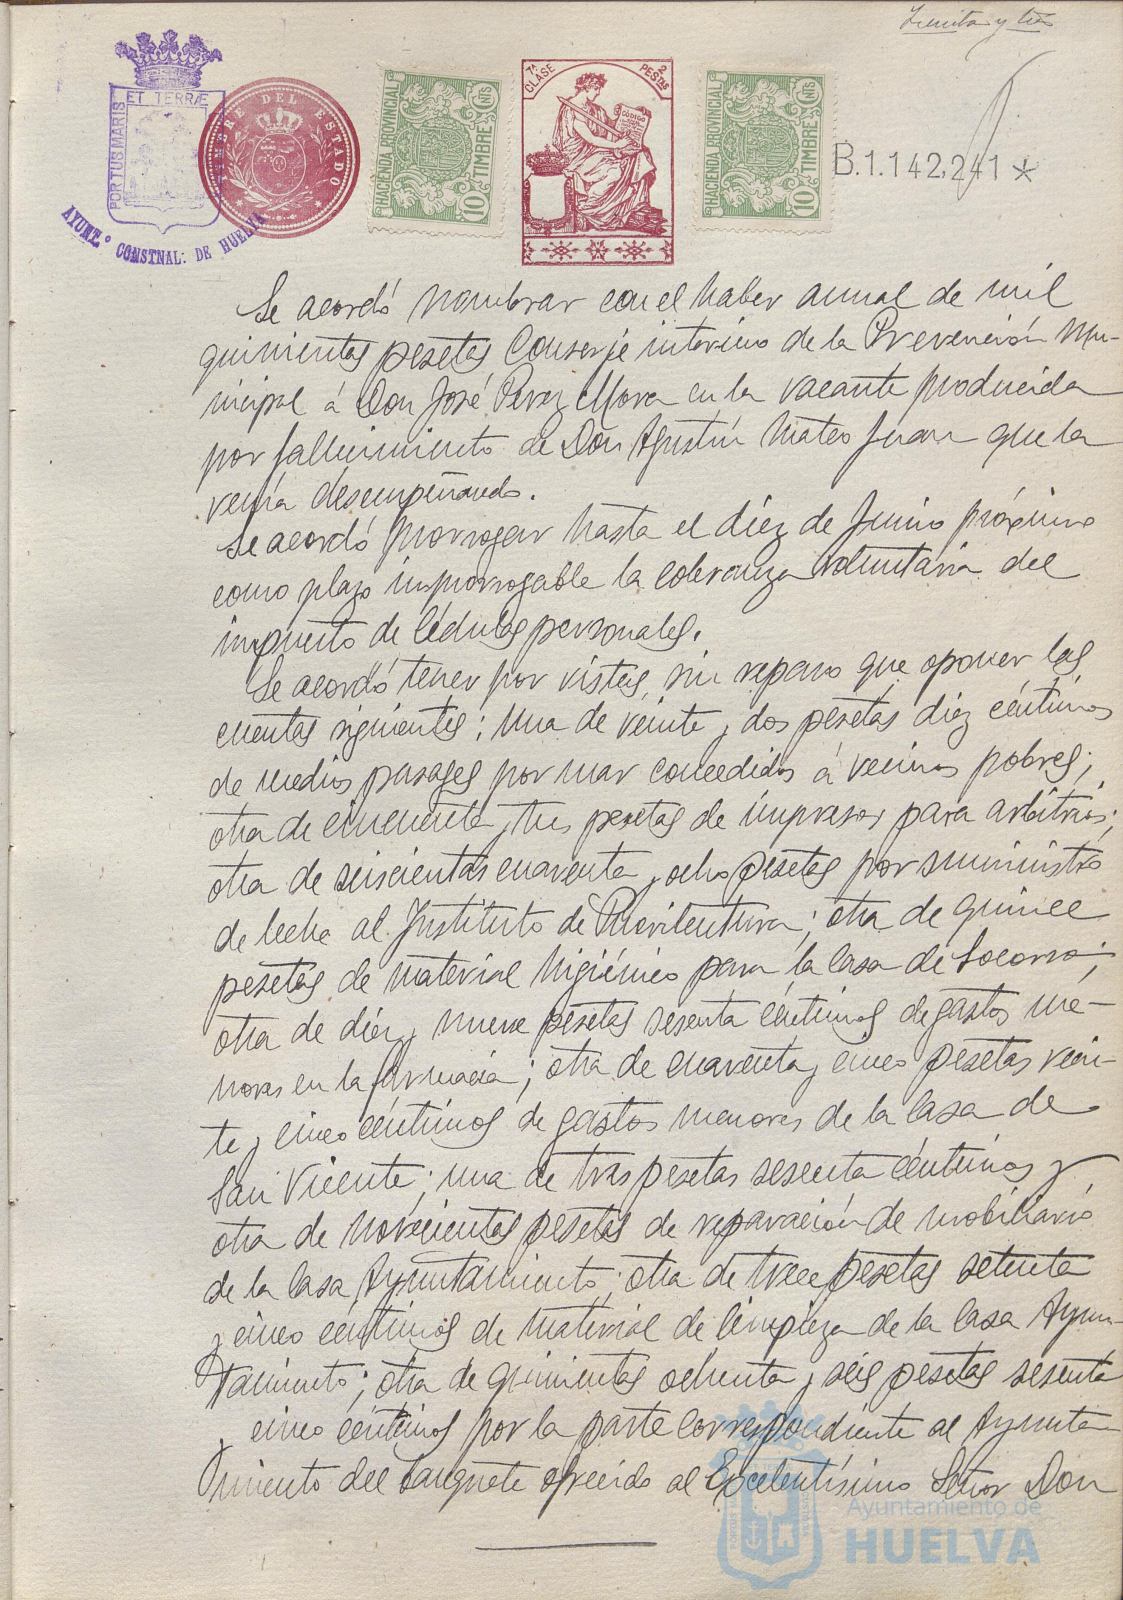 Treinta y tres
PORTUS MARIS
ET TERRÆ
AYUNT.º CONSTNAL: DE HUELVA
TIMBRE DEL ESTADO
HACIENDA PROVINCIAL
10 CNTS
TIMBRE
7ª CLASE
2 PESTAS
CÓDIGO
HACIENDA PROVINCIAL
10 CNTS
TIMBRE
B.1.142,241 *
Se acordó nombrar con el haber anual de mil
quinientas pesetas Conserje interino de la Prevención Mu-
nicipal á Don José Perez Mora en la vacante producida
por fallecimiento de Don Agustín Mateo Juan que la
venía desempeñando.
Se acordó prorrogar hasta el diez de Junio próximo
como plazo improrrogable la cobranza voluntaria del
impuesto de Cédulas personales.
Se acordó tener por vistas, sin reparo que oponer las
cuentas siguientes: una de veinte y dos pesetas diez céntimos
de medios pasages por mar concedidos á vecinos pobres;
otra de cincuenta y tres pesetas de impresos para arbitrios;
otra de seiscientas cuarenta y ocho pesetas por suministro
de leche al Instituto de Puericultura; otra de quince
pesetas de material higiénico para la Casa de Socorro;
otra de diez y nueve pesetas sesenta céntimos de gastos me-
nores en la farmacia; otra de cuarenta y cinco pesetas vein-
te y cinco céntimos de gastos menores de la Casa de
San Vicente; una de tres pesetas sesenta céntimos y
otra de novecientas pesetas de reparación de mobiliario
de la Casa Ayuntamiento; otra de trece pesetas setenta
y cinco céntimos de material de limpieza de la Casa Ayun-
tamiento; otra de quinientas ochenta y seis pesetas sesenta
y cinco céntimos por la parte correspondiente al Ayunta
miento del banquete ofrecido al Excelentísimo Señor Don
Ayuntamiento de
HUELVA